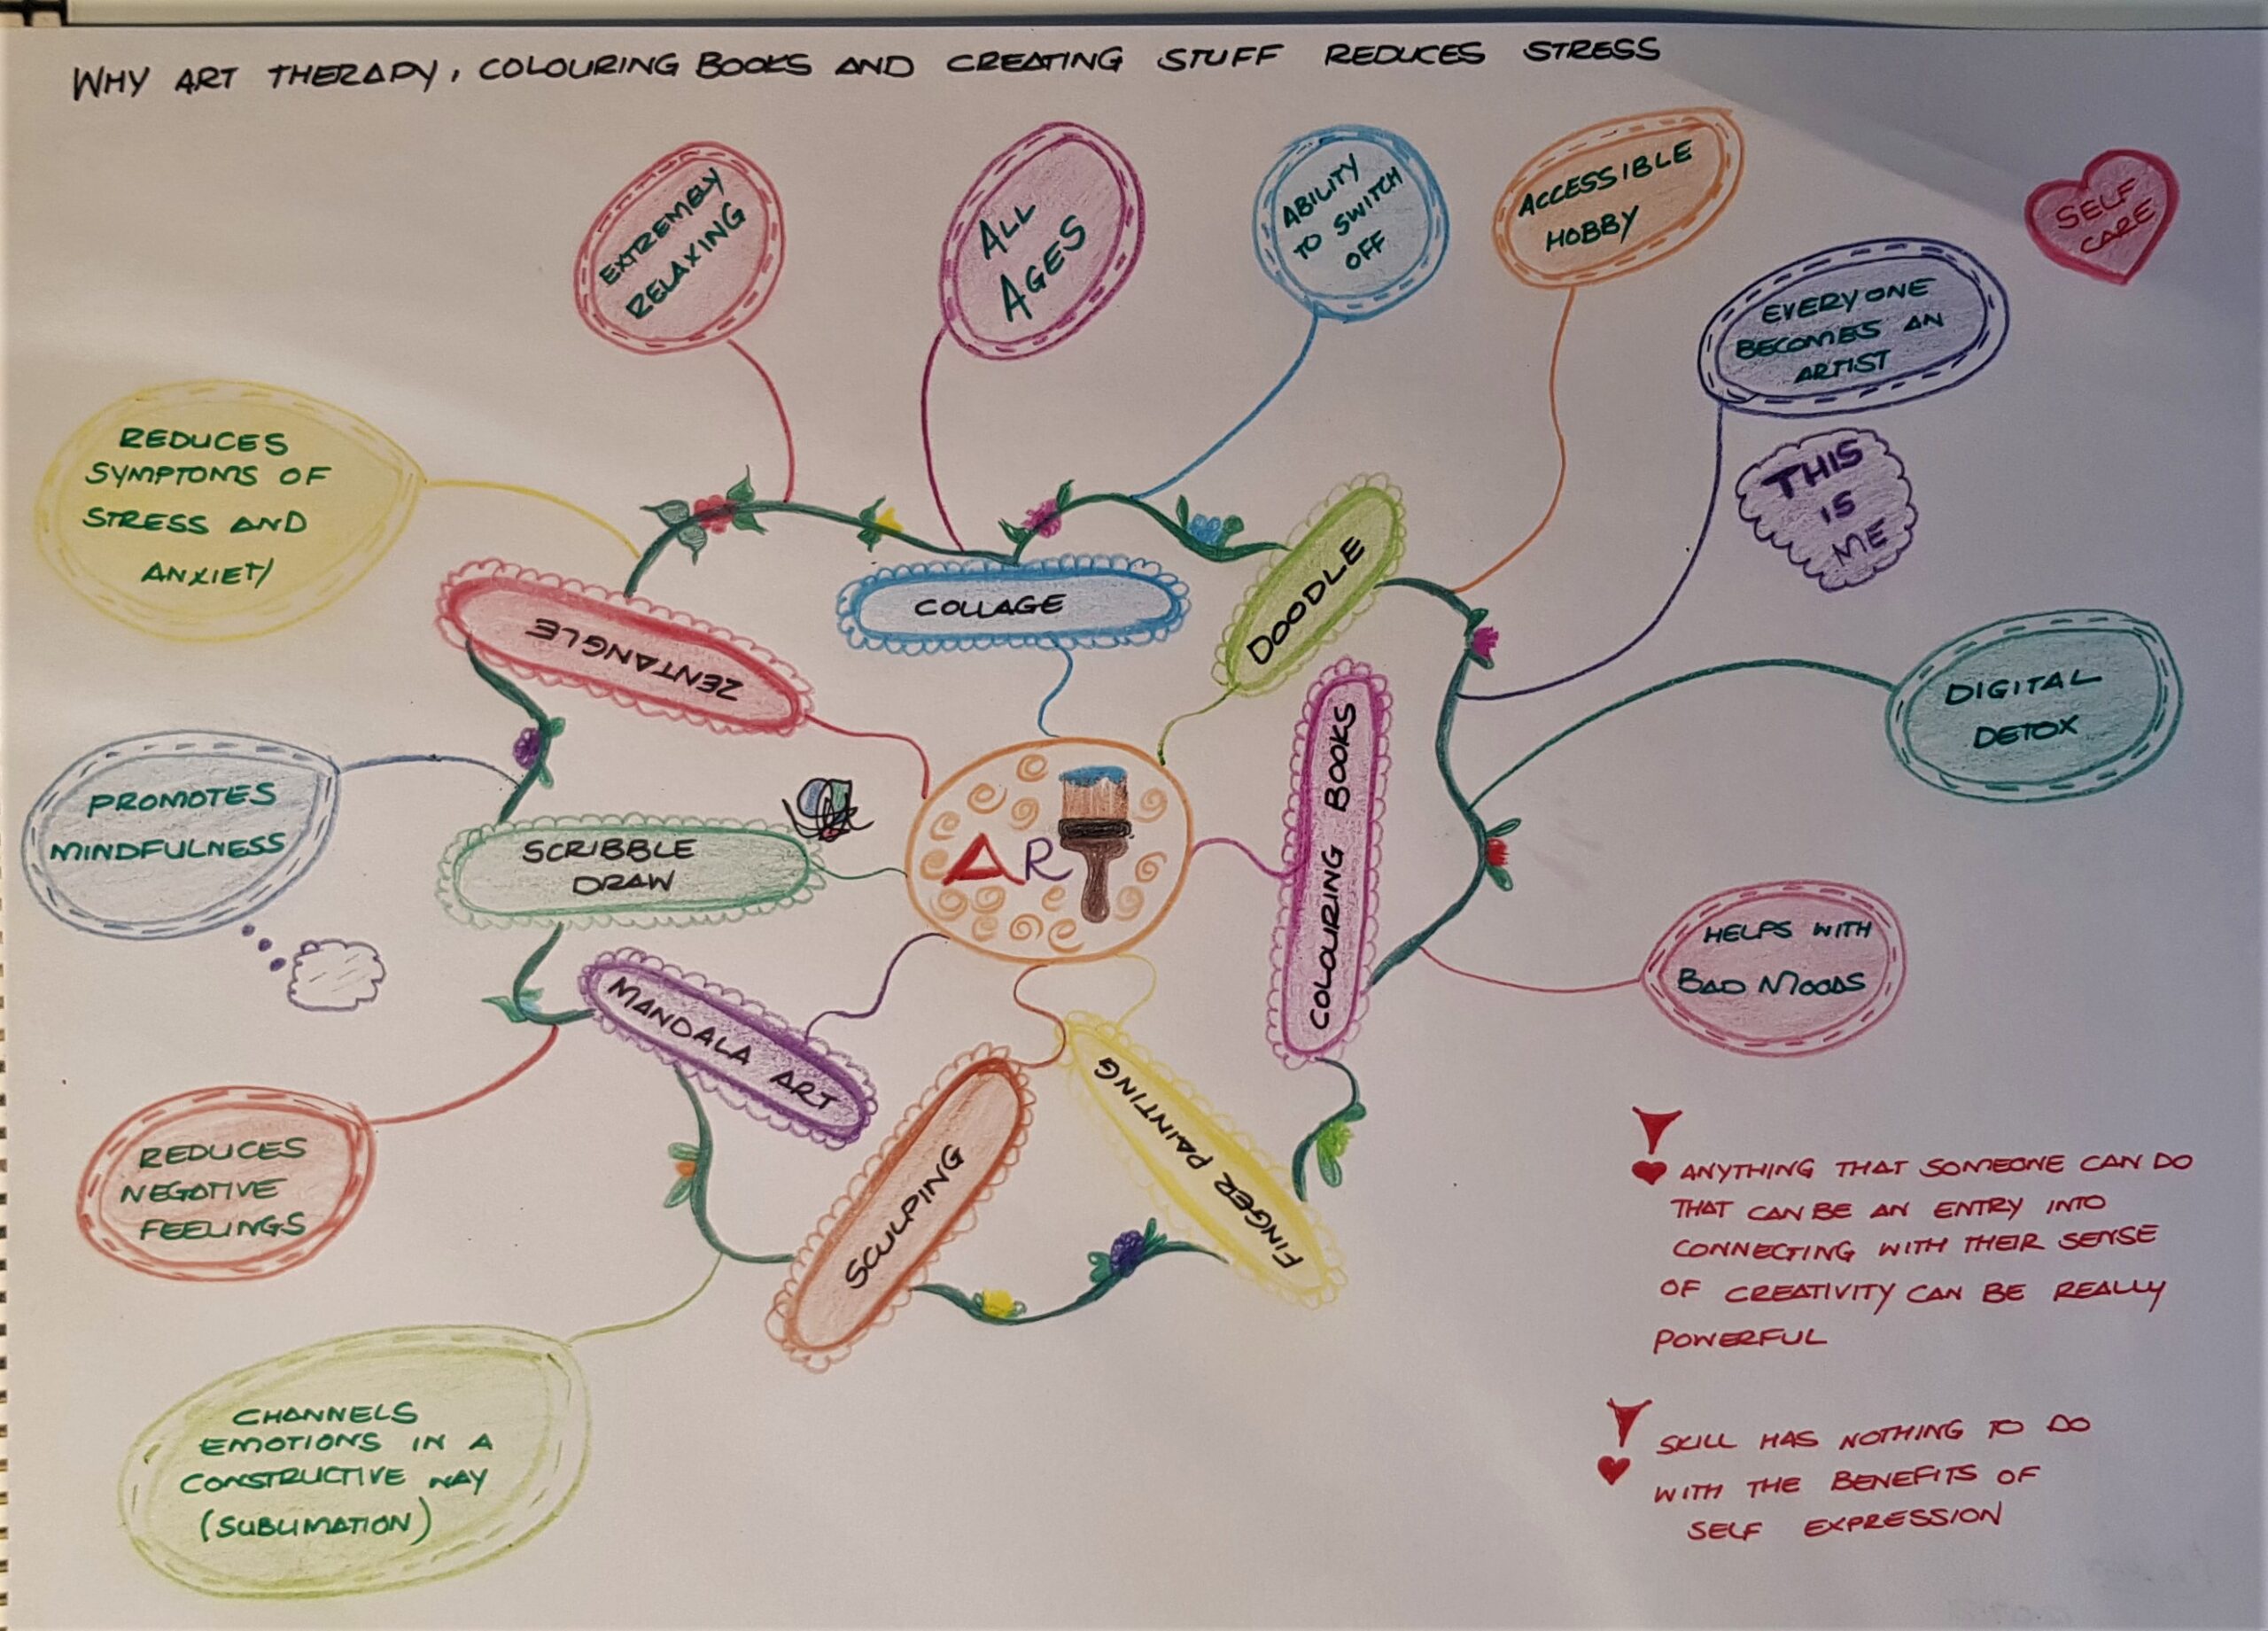 WHY ART THERAPY, COLOURING BOOKS AND CREATING STUFF REDUCES STRESS
EXTREMELY
RELAXING
ALL
AGES
ABILITY
TO SWITCH
OFF
ACCESSIBLE
HOBBY
SELF
CARE
EVERYONE
BECOMES AN
ARTIST
THIS
IS
ME
REDUCES
SYMPTOMS OF
STRESS AND
ANXIETY
ZENTANGLE
COLLAGE
DOODLE
DIGITAL
DETOX
PROMOTES
MINDFULNESS
SCRIBBLE
DRAW
AR
COLOURING BOOKS
HELPS WITH
BAD MOODS
MANDALA ART
SCULPING
FINGER PAINTING
REDUCES
NEGATIVE
FEELINGS
CHANNELS
EMOTIONS IN A
CONSTRUCTIVE WAY
(SUBLIMATION)
ANYTHING THAT SOMEONE CAN DO
THAT CAN BE AN ENTRY INTO
CONNECTING WITH THEIR SENSE
OF CREATIVITY CAN BE REALLY
POWERFUL
SKILL HAS NOTHING TO DO
WITH THE BENEFITS OF
SELF EXPRESSION